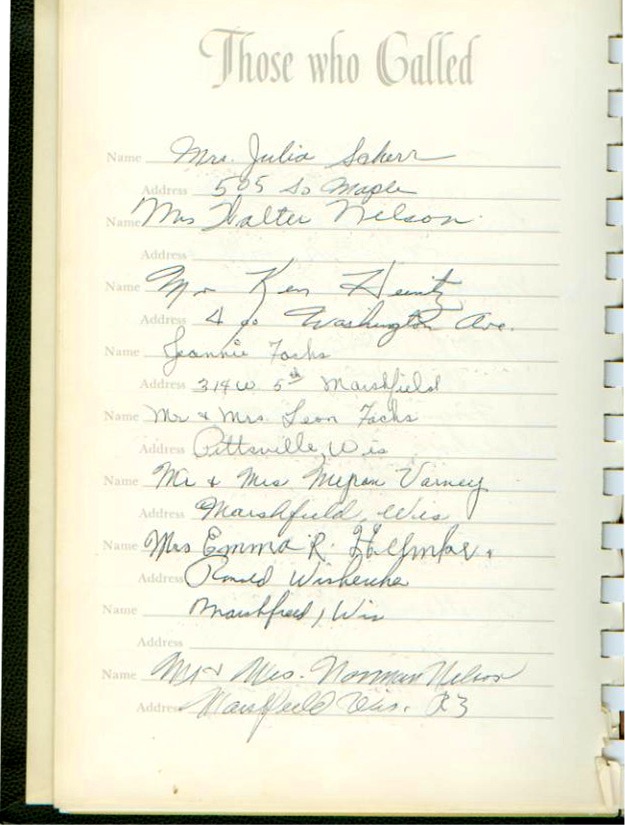 Those who Called
Name Mrs. Julia Scherr
Address 505 So Maple
Name Mrs Walter Nelson.
Address
Name Mr Ken Heintz
Address 400 Washington Ave.
Name Jeannie Fochs
Address 314 W 5th Marshfield
Name Mr & Mrs. Leon Fochs
Address Pittsville, Wis
Name Mr & Mrs Myron Varney
Address Marshfield, Wis
Name Mrs Emma R. &
Address Ronald
Name Marshfield, Wis
Address
Name Mr & Mrs. Norman Nelson
Address Marsfield Wis. R3